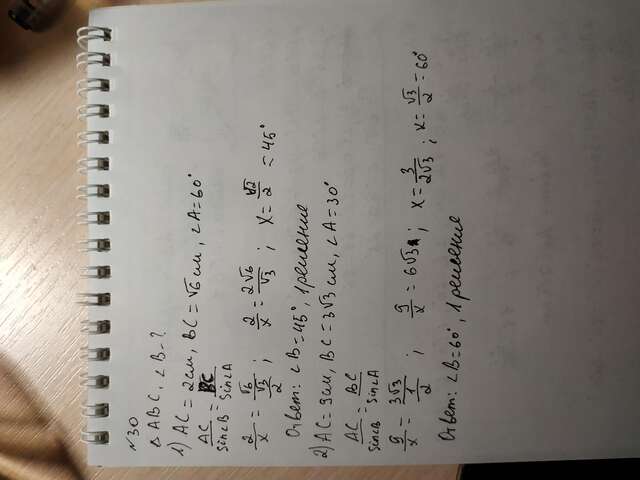 №30
△ABC, ∠B-?
1) AC = 2см, BC = √6 см, ∠A = 60°
AC/sin∠B = BC/sin∠A
2/x = √6/(√3/2) ; 2/x = 2√6/√3 ; x = √2/2 = 45°
Ответ: ∠B = 45°, 1 решение
2) AC = 9см, BC = 3√3 см, ∠A = 30°
AC/sin∠B = BC/sin∠A
9/x = 3√3/(1/2) ; 9/x = 6√3 ; x = 3/2√3 ; x = √3/2 = 60°
Ответ: ∠B = 60°, 1 решение